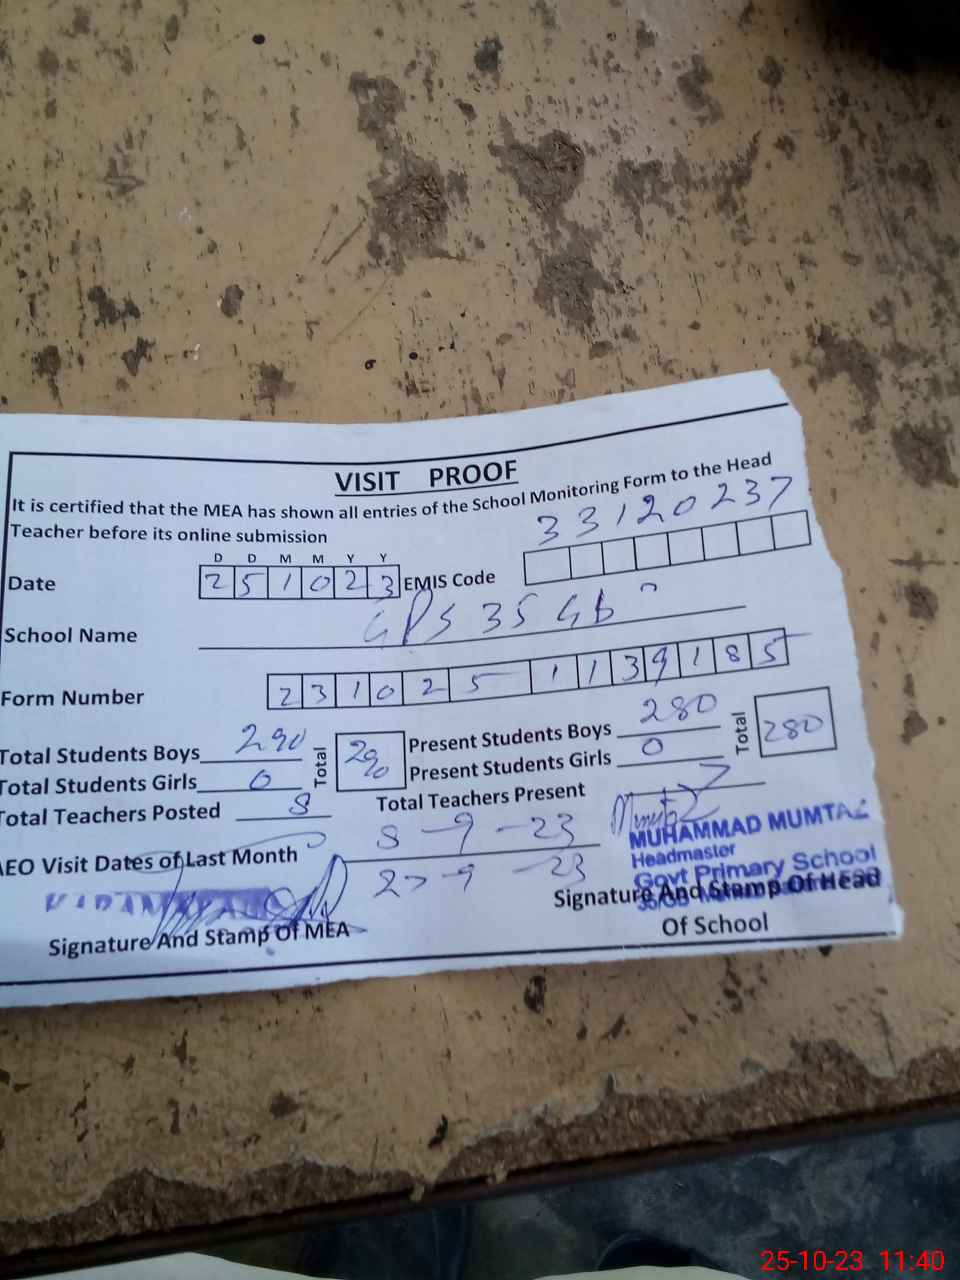 VISIT PROOF
It is certified that the MEA has shown all entries of the School Monitoring Form to the Head
Teacher before its online submission
33120237
D D M M Y Y
Date 2 5 1 0 2 3 EMIS Code
School Name GPS 35 GB
Form Number 2 3 1 0 2 5 1 1 3 9 1 8 5
Total Students Boys 290 Total 290 Present Students Boys 280 Total 280
Total Students Girls 0 Present Students Girls 0
Total Teachers Posted 8 Total Teachers Present 7
AEO Visit Dates of Last Month 8-9-23
27-9-23
MUHAMMAD MUMTAZ
Headmaster
Govt Primary School
35/GB
Signature And Stamp Of MEA
Signature And Stamp Of Head
Of School
25-10-23 11:40